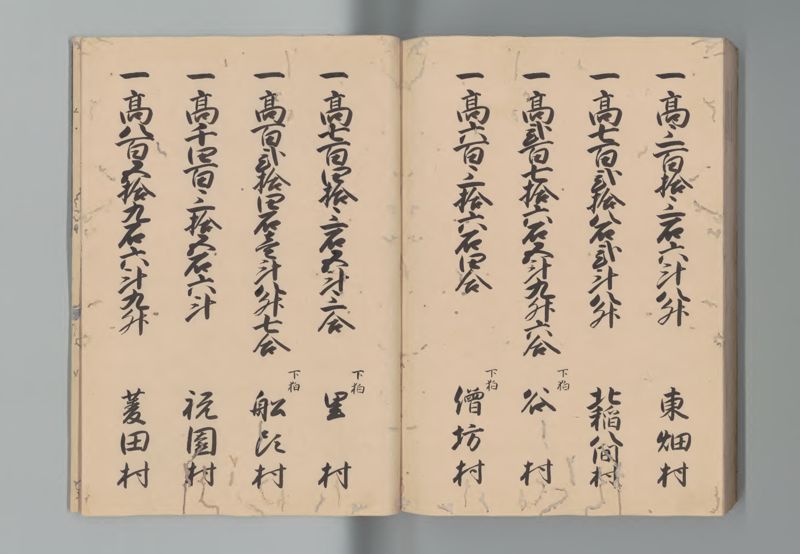 一高三百拾三石六斗八升 東畑村
一高七百弐拾八石弐斗八升 北稲八間村
一高弐百七拾六石五斗九升六合 下狛 谷村
一高六百三拾六石四合 下狛 僧坊村
一高七百四拾三石五斗三合 下狛 里村
一高百弐拾四石壱斗八升七合 下狛 船片村
一高千四百三拾五石六斗 祝園村
一高八百五拾九石六斗九升 菱田村